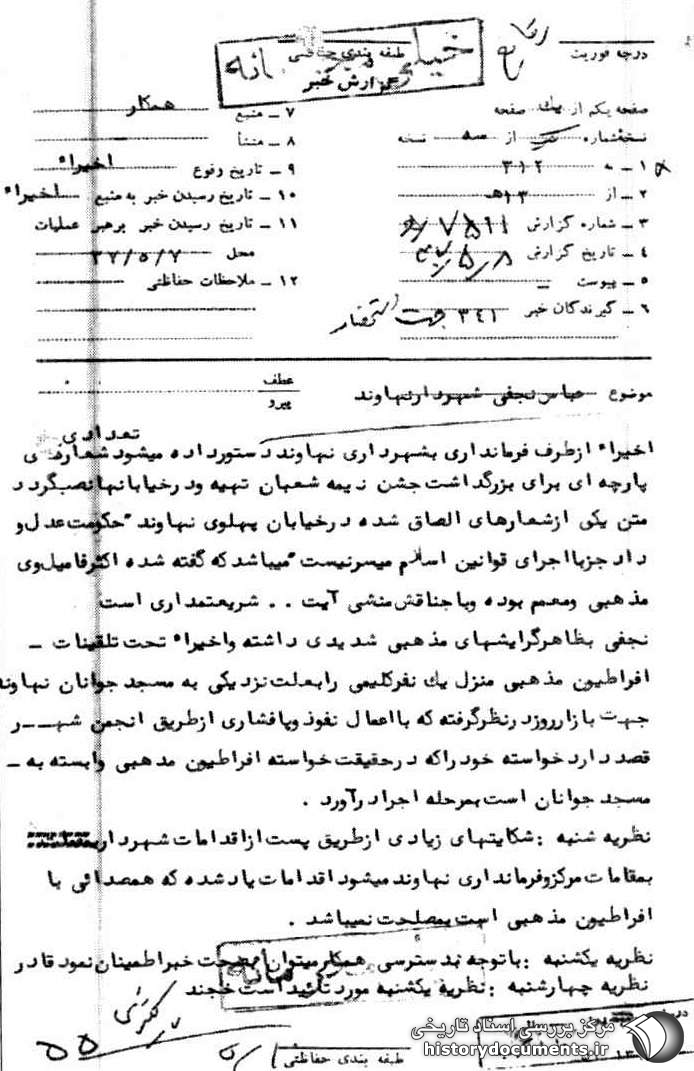 درجه فوریت
طبقه بندی حفاظتی
خیلی محرمانه
گزارش خبر
صفحه یکم از یک صفحه
نسخه شماره یک از سه نسخه
۱ ـ به ۳۱۲
۲ ـ از ۱۳ هـ
۳ ـ شماره گزارش
۴ ـ تاریخ گزارش
۵ ـ پیوست ـ
۶ ـ گیرندگان خبر ۳۴۱ جهت استحضار
۷ ـ منبع همکار
۸ ـ منشأ
۹ ـ تاریخ وقوع اخیراء
۱۰ ـ تاریخ رسیدن خبر به منبع اخیراء
۱۱ ـ تاریخ رسیدن خبر برهبر عملیات
محل ۳۷/۵/۷
۱۲ ـ ملاحظات حفاظتی
موضوع عباس نجفی شهردار نهاوند
عطف
پیرو
تعدادی
اخیراء ازطرف فرمانداری بشهرداری نهاوند دستورداده میشود شعارهای
پارچه ای برای بزرگداشت جشن نیمه شعبان تهیه ودرخیابانها نصبگردد
متن یکی ازشعارهای الصاق شده درخیابان پهلوی نهاوند "حکومت عدل و
داد جزبااجرای قوانین اسلام میسرنیست" میباشد که گفته شده اکثرفامیل وی
مذهبی ومعمم بوده وباجناقش منشی آیت .. شریعتمداری است
نجفی بظاهرگرایشهای مذهبی شدیدی داشته واخیراء تحت تلقینات ـ
افراطیون مذهبی منزل یک نفرکلیمی رابعلت نزدیکی به مسجد جوانان نهاوند
جهت بازارروز درنظرگرفته که بااعمال نفوذ وپافشاری ازطریق انجمن شهـــر
قصد دارد خواسته خودراکه درحقیقت خواسته افراطیون مذهبی وابسته به ـ
مسجد جوانان است بمرحله اجرا درآورد .
نظریه شنبه : شکایتهای زیادی ازطریق پست ازاقدامات شهردار
بمقامات مرکزوفرمانداری نهاوند میشود اقدامات یاد شده که همصدائی با
افراطیون مذهبی است بمصلحت نمیباشد .
نظریه یکشنبه : باتوجه بدسترسی همکار میتوان بصحت خبراطمینان نمود قادر
نظریه چهارشنبه : نظریه یکشنبه مورد تائید است خجند
طبقه بندی حفاظتی
مرکز بررسی اسناد تاریخی
historydocuments.ir